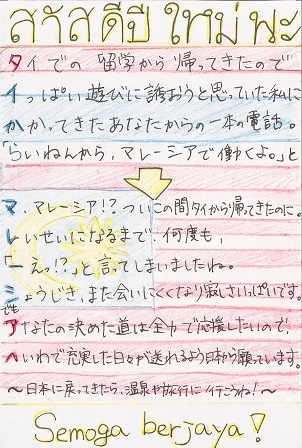 สวัสดีปี ใหม่ นะ
タイでの留学から帰ってきたので
イっぱい遊びに誘おうと思っていた私に
かかってきたあなたからの一本の電話。
「らいねんから、マレーシアで働くよ。」と
マ、マレーシア!?ついこの間タイから帰ってきたのに。
レいせいになるまで、何度も、
「ーえっ!?」と言ってしまいましたね。
シょうじき、また会いにくくなり寂しさいっぱいです。
でも
アなたの決めた道は全力で応援したいので、
へいわで充実した日々が送れるよう日本から願っています。
～日本に戻ってきたら、温泉や旅行に行こうね!～
Semoga berjaya!